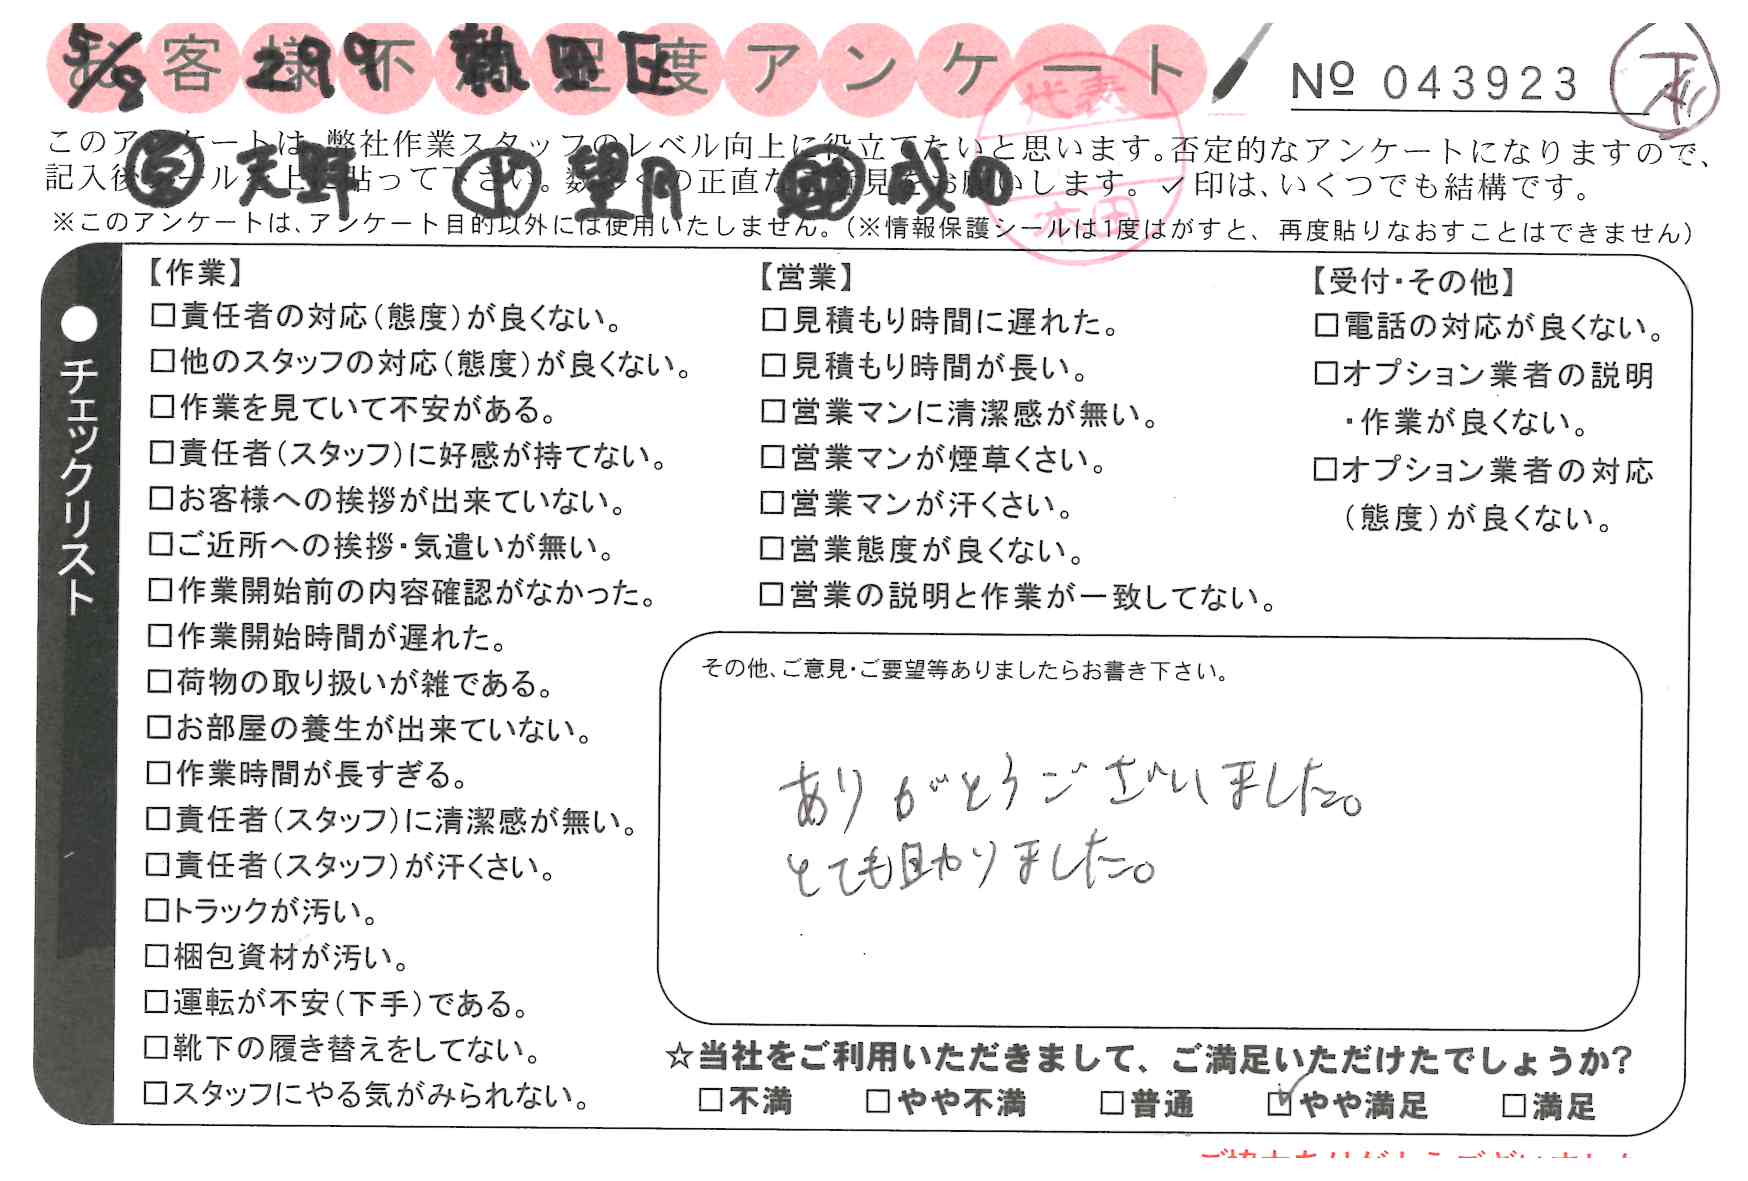 お客様不満足度アンケート
5/8 299 熱田区
№ 043923
このアンケートは、弊社作業スタッフのレベル向上に役立てたいと思います。否定的なアンケートになりますので、
記入後シールを上に貼って下さい。数多くの正直なご意見をお願いします。✓印は、いくつでも結構です。
天野 望月 成田
代表
本田
※このアンケートは、アンケート目的以外には使用いたしません。(※情報保護シールは1度はがすと、再度貼りなおすことはできません)
●チェックリスト
【作業】
□責任者の対応(態度)が良くない。
□他のスタッフの対応(態度)が良くない。
□作業を見ていて不安がある。
□責任者(スタッフ)に好感が持てない。
□お客様への挨拶が出来ていない。
□ご近所への挨拶・気遣いが無い。
□作業開始前の内容確認がなかった。
□作業開始時間が遅れた。
□荷物の取り扱いが雑である。
□お部屋の養生が出来ていない。
□作業時間が長すぎる。
□責任者(スタッフ)に清潔感が無い。
□責任者(スタッフ)が汗くさい。
□トラックが汚い。
□梱包資材が汚い。
□運転が不安(下手)である。
□靴下の履き替えをしてない。
□スタッフにやる気がみられない。
【営業】
□見積もり時間に遅れた。
□見積もり時間が長い。
□営業マンに清潔感が無い。
□営業マンが煙草くさい。
□営業マンが汗くさい。
□営業態度が良くない。
□営業の説明と作業が一致してない。
【受付・その他】
□電話の対応が良くない。
□オプション業者の説明
・作業が良くない。
□オプション業者の対応
(態度)が良くない。
その他、ご意見・ご要望等ありましたらお書き下さい。
ありがとうございました。
とても助かりました。
☆当社をご利用いただきまして、ご満足いただけたでしょうか?
□不満 □やや不満 □普通 ☑やや満足 □満足